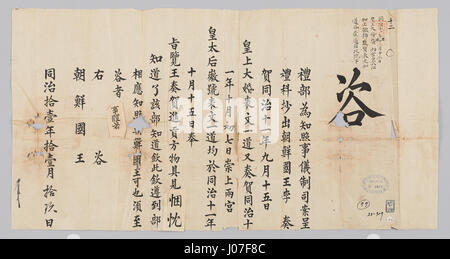 十三
咨
禮部為知照事儀制司案呈
禮科抄出朝鮮國王李 奏
賀同治十一年九月十五日
皇上大婚表文一道又奏賀同治十
一年十月初七日崇上兩宮
皇太后徽號表文一道均於同治十一年
十月十五日奉
旨覽王奏賀進貢方物具見悃忱
知道了該部知道欽此欽遵到部
相應知照朝鮮國王可也須至
咨者
右 咨
朝鮮國王
同治拾壹年拾壹月拾玖日
alamy
www.alamy.com - J07F8C